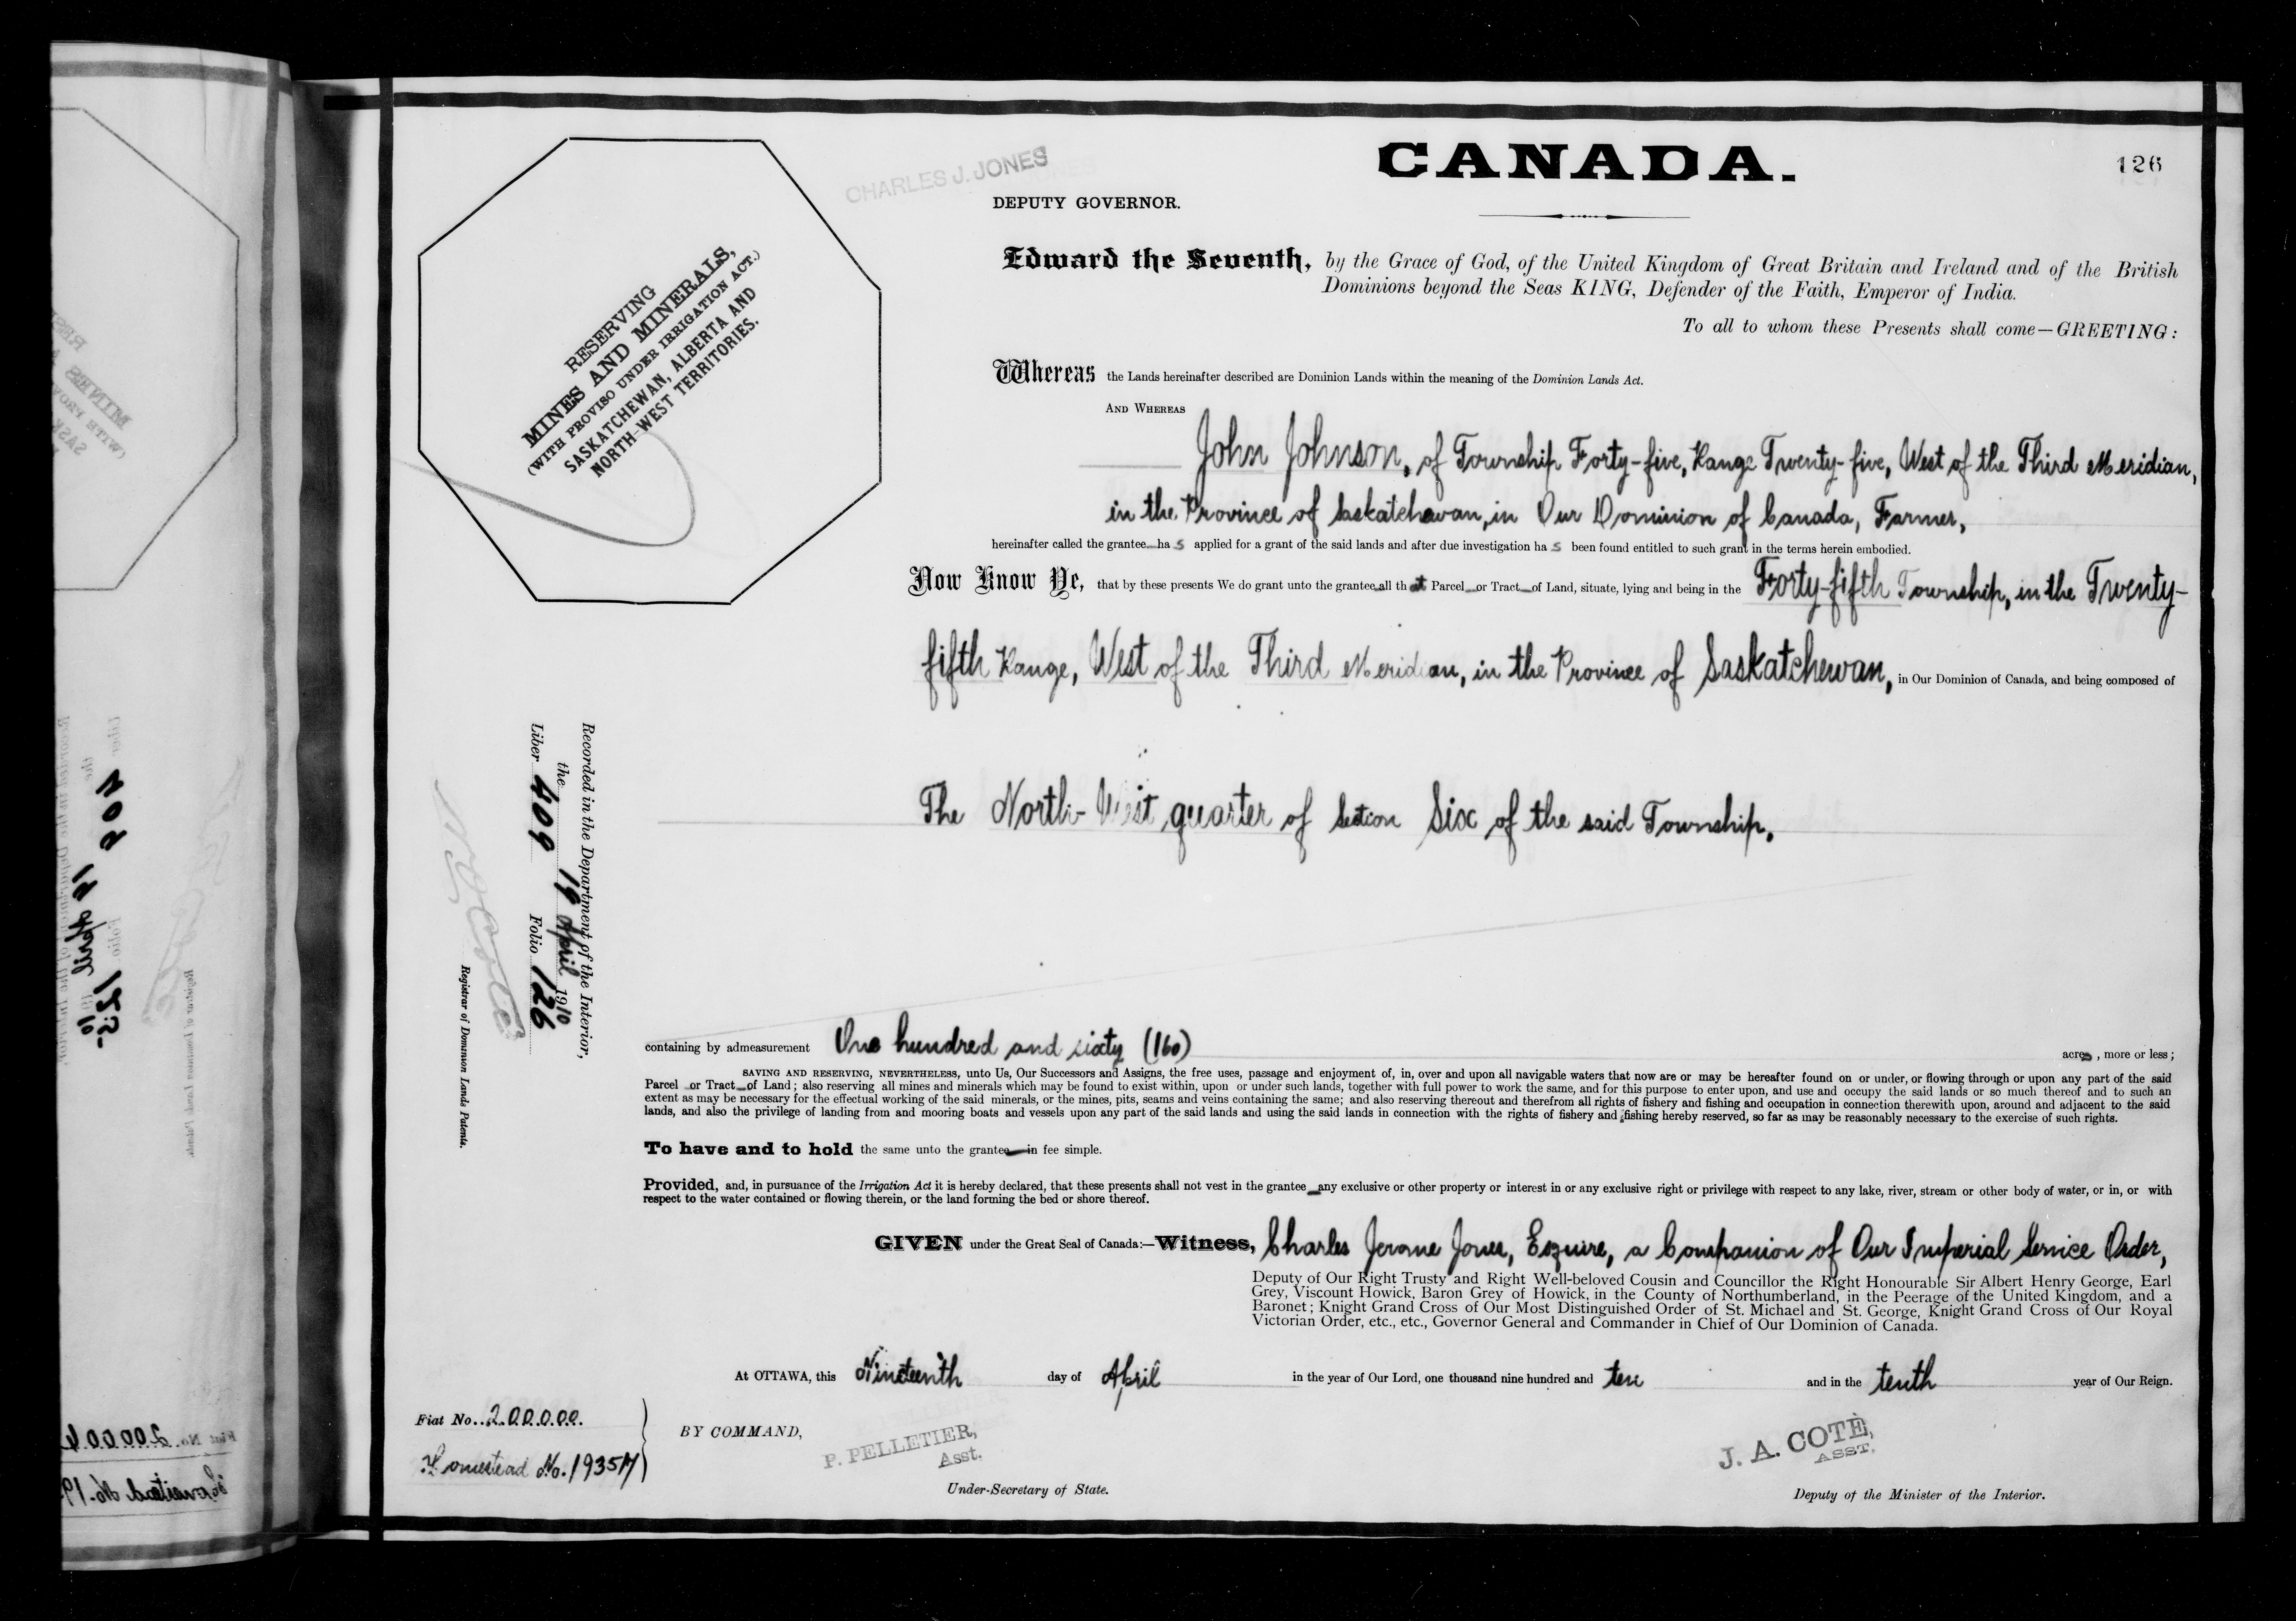 CANADA.
126
CHARLES J. JONES
DEPUTY GOVERNOR.
RESERVING
MINES AND MINERALS,
(WITH PROVISO UNDER IRRIGATION ACT.)
SASKATCHEWAN, ALBERTA AND
NORTH-WEST TERRITORIES.
Edward the Seventh, by the Grace of God, of the United Kingdom of Great Britain and Ireland and of the British
Dominions beyond the Seas KING, Defender of the Faith, Emperor of India.
To all to whom these Presents shall come—GREETING:
Whereas the Lands hereinafter described are Dominion Lands within the meaning of the Dominion Lands Act.
AND WHEREAS
John Johnson, of Township Forty-five, Range Twenty-five, West of the Third Meridian,
in the Province of Saskatchewan, in Our Dominion of Canada, Farmer,
hereinafter called the grantee has applied for a grant of the said lands and after due investigation has been found entitled to such grant in the terms herein embodied.
Now Know Ye, that by these presents We do grant unto the grantee all that Parcel or Tract of Land, situate, lying and being in the Forty-fifth Township, in the Twenty-
fifth Range, West of the Third Meridian, in the Province of Saskatchewan, in Our Dominion of Canada, and being composed of
The North-West quarter of Section Six of the said Township.
Recorded in the Department of the Interior,
the 19 April 1910
Liber 409 Folio 126
Registrar of Dominion Lands Patents.
containing by admeasurement One hundred and sixty (160) acres, more or less;
SAVING AND RESERVING, NEVERTHELESS, unto Us, Our Successors and Assigns, the free uses, passage and enjoyment of, in, over and upon all navigable waters that now are or may be hereafter found on or under, or flowing through or upon any part of the said
Parcel or Tract of Land; also reserving all mines and minerals which may be found to exist within, upon or under such lands, together with full power to work the same, and for this purpose to enter upon, and use and occupy the said lands or so much thereof and to such an
extent as may be necessary for the effectual working of the said minerals, or the mines, pits, seams and veins containing the same; and also reserving thereout and therefrom all rights of fishery and fishing and occupation in connection therewith upon, around and adjacent to the said
lands, and also the privilege of landing from and mooring boats and vessels upon any part of the said lands and using the said lands in connection with the rights of fishery and fishing hereby reserved, so far as may be reasonably necessary to the exercise of such rights.
To have and to hold the same unto the grantee in fee simple.
Provided, and, in pursuance of the Irrigation Act it is hereby declared, that these presents shall not vest in the grantee any exclusive or other property or interest in or any exclusive right or privilege with respect to any lake, river, stream or other body of water, or in, or with
respect to the water contained or flowing therein, or the land forming the bed or shore thereof.
GIVEN under the Great Seal of Canada:—Witness, Charles Jerome Jones, Esquire, a Companion of Our Imperial Service Order,
Deputy of Our Right Trusty and Right Well-beloved Cousin and Councillor the Right Honourable Sir Albert Henry George, Earl
Grey, Viscount Howick, Baron Grey of Howick, in the County of Northumberland, in the Peerage of the United Kingdom, and a
Baronet; Knight Grand Cross of Our Most Distinguished Order of St. Michael and St. George, Knight Grand Cross of Our Royal
Victorian Order, etc., etc., Governor General and Commander in Chief of Our Dominion of Canada.
At OTTAWA, this Nineteenth day of April in the year of Our Lord, one thousand nine hundred and ten and in the tenth year of Our Reign.
Fiat No. 200000.
Homestead No. 19357
BY COMMAND,
P. PELLETIER,
Asst.
Under-Secretary of State.
J. A. COTÈ,
ASST.
Deputy of the Minister of the Interior.